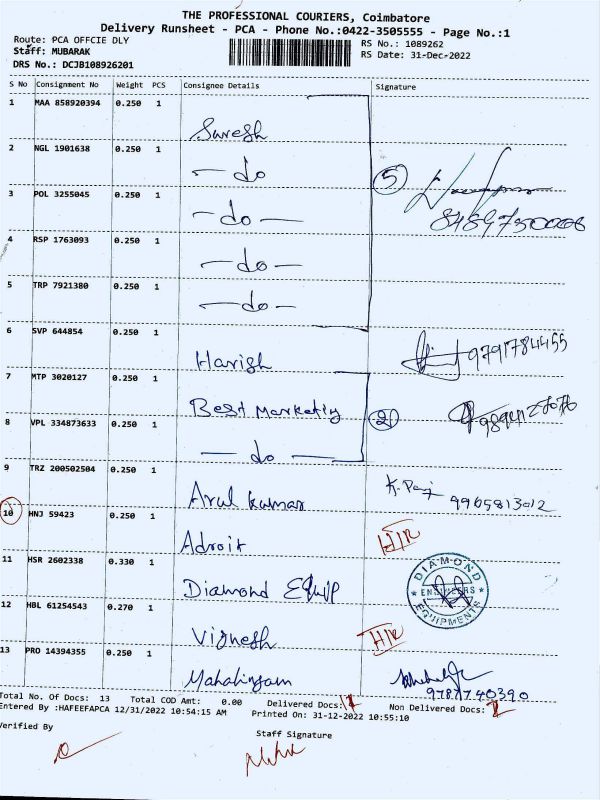 THE PROFESSIONAL COURIERS, Coimbatore
Delivery Runsheet - PCA - Phone No.:0422-3505555 - Page No.:1
Route: PCA OFFCIE DLY
RS No.: 1089262
Staff: MUBARAK
RS Date: 31-Dec-2022
DRS No.: DCJB108926201
S No Consignment No Weight PCS Consignee Details Signature
1 MAA 858920394 0.250 1
Suresh
2 NGL 1901638 0.250 1
— do
5
3 POL 3255045 0.250 1
- do —
4 RSP 1763093 0.250 1
— do —
5 TRP 7921380 0.250 1
— do —
6 SVP 644854 0.250 1
Harish 9791784455
7 MTP 3020127 0.250 1
Best Marketig
2
8 VPL 334873633 0.250 1
— do —
9 TRZ 200502504 0.250 1
Arul kumar 9965813012
10 HNJ 59423 0.250 1
Adroit H/R
11 HSR 2602338 0.330 1
Diamond Equip
DIAMOND
ENGINEERS
EQUIPMENTS
12 HBL 61254543 0.270 1
Vignesh H/R
13 PRO 14394355 0.250 1
Mahalingam
9787740390
Total No. Of Docs: 13 Total COD Amt: 0.00 Delivered Docs: 11 Non Delivered Docs: 2
Entered By :HAFEEFAPCA 12/31/2022 10:54:15 AM Printed On: 31-12-2022 10:55:10
Verified By
Staff Signature